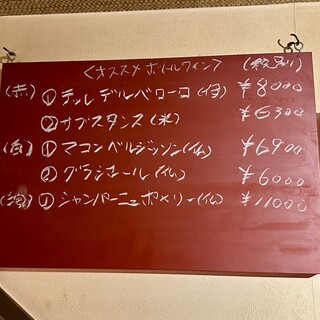 <オススメボトルワイン> (税別)
(赤) ① テッレデルベローロ(伊) ¥8000
② サブスタンス(米) ¥6300
(白) ① マコンベルジッソン(仏) ¥6900
② グラシホール(仏) ¥6000
(泡) ① シャンパーニュポメリー(仏) ¥11000